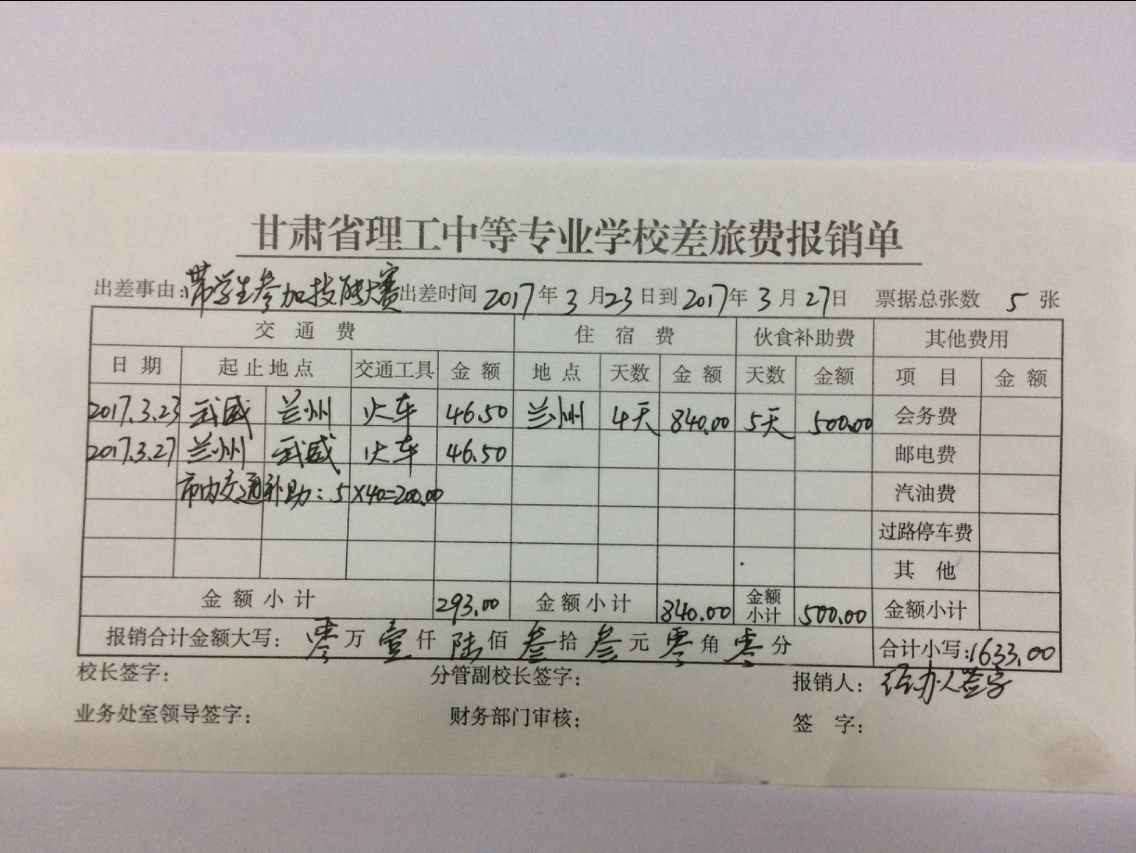 甘肃省理工中等专业学校差旅费报销单
出差事由:带学生参加技能大赛 出差时间 2017年3月23日到2017年3月27日 票据总张数 5 张
交通费 住宿费 伙食补助费 其他费用
日期 起止地点 交通工具 金额 地点 天数 金额 天数 金额 项目 金额
2017.3.23 武威 兰州 火车 46.50 兰州 4天 840.00 5天 500.00 会务费
2017.3.27 兰州 武威 火车 46.50 邮电费
市内交通补助:5×40=200.00 汽油费
过路停车费
其他
金额小计 293.00 金额小计 840.00 金额小计 500.00 金额小计
报销合计金额大写:零万壹仟陆佰叁拾叁元零角零分 合计小写:1633.00
校长签字: 分管副校长签字: 报销人:经办人签字
业务处室领导签字: 财务部门审核: 签字: